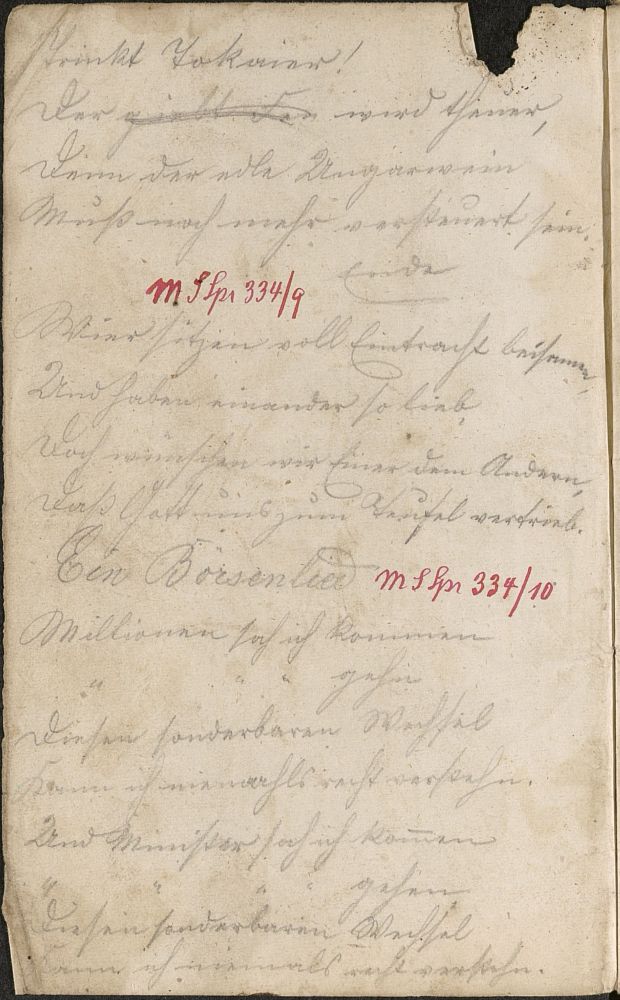 Trinkt Tokaier!
Der wird theuer,
Denn der edle Ungarwein
Muß noch mehr versteuert sein.
Ende
M S Spr 334/9
Wir sitzen voll Eintracht beisamen,
Und haben einander so lieb,
Doch wünschen wir Einer dem Andern,
Daß Gott uns zum Teufel vertrieb.
Ein Börsenlied M S Spr 334/10
Millionen sah ich kommen
" " " gehn
Diesen sonderbaren Wechsel
Kann ich niemahls recht verstehn.
Und Minister sah ich kom̄en
" " " " gehen
Diesen sonderbaren Wechsel
Kann ich niemals recht verstehn.